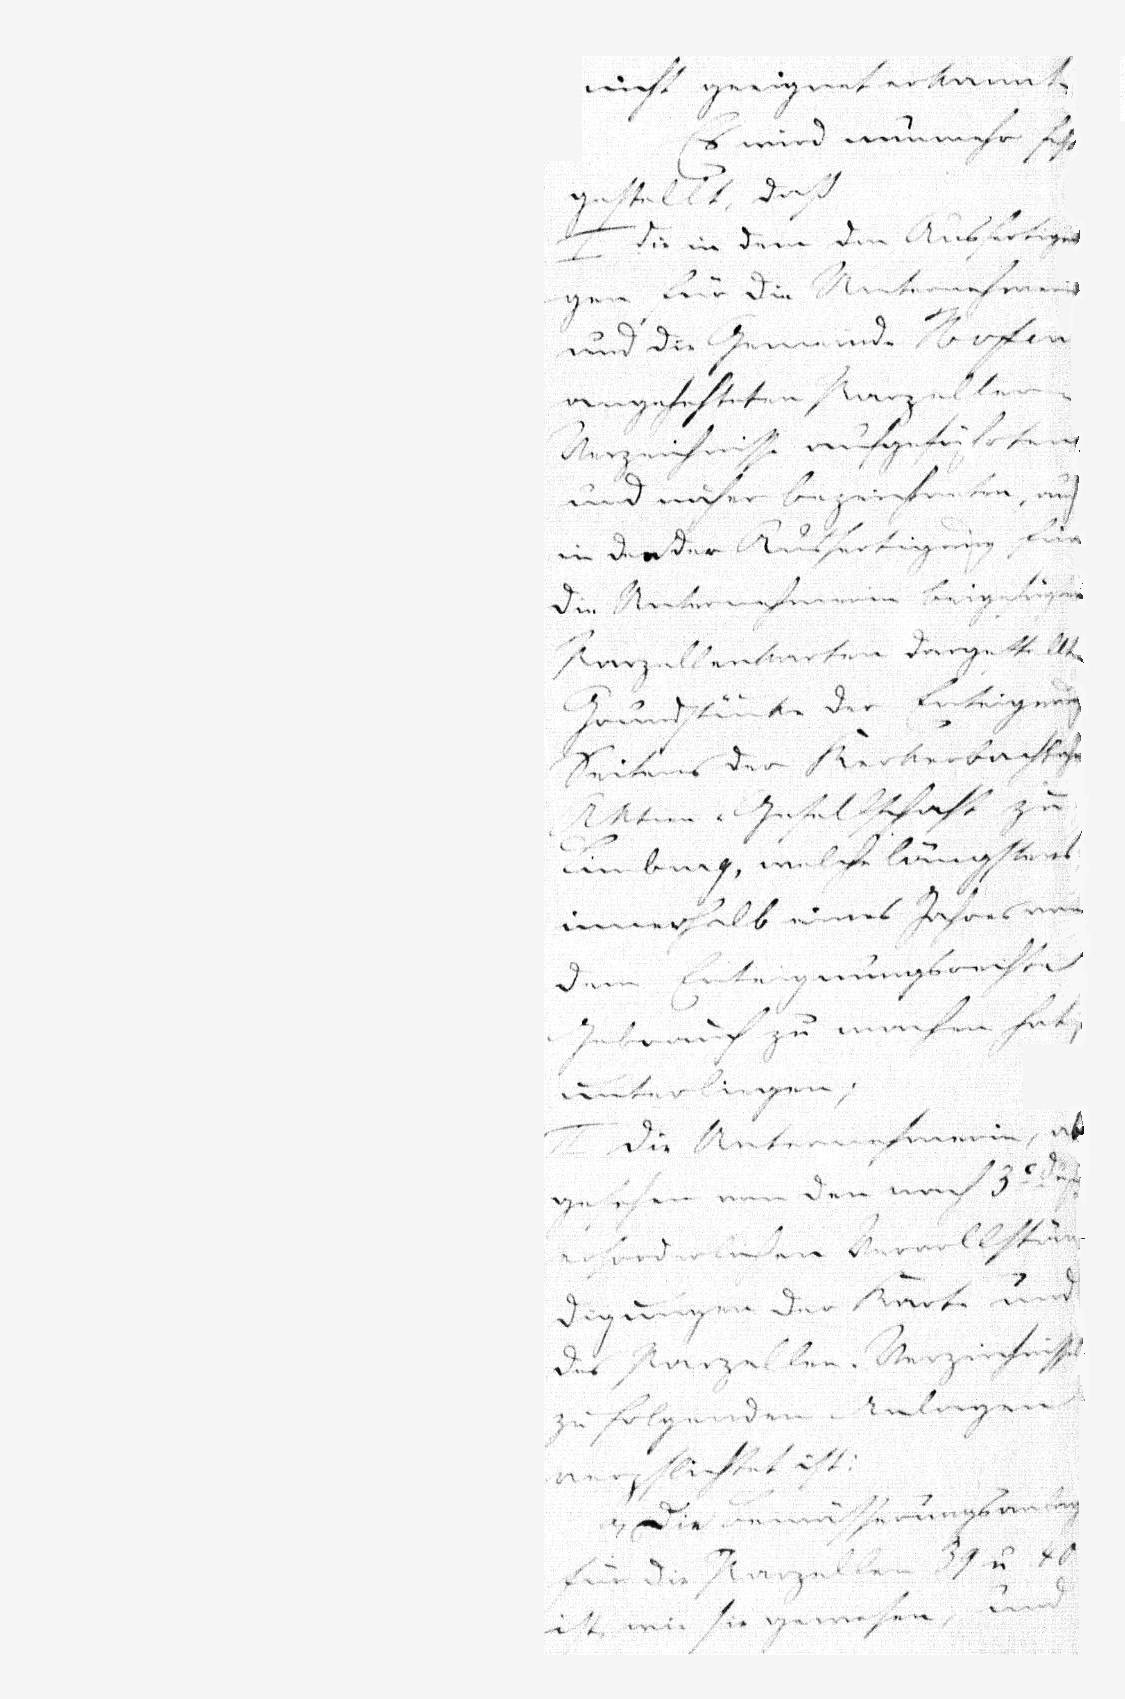 nicht geeignet erkannt.
Es wird nunmehr fest
gestellt, daß
I die in dem den Ausfertigun
gen für die Unternehmerin
und die Gemeinde Hofen
angehefteten Parzellen-
Verzeichnisse aufgeführten
und näher bezeichneten, auch
in den der Ausfertigung für
die Unternehmerin beigefügten
Parzellenkarten dargestellten
Grundstücke der Enteignung
Seitens der Kerkerbachbahn
Aktien-Gesellschaft zu
Limburg, welche längstens
innerhalb eines Jahres von
dem Enteignungsrechte
Gebrauch zu machen hat,
unterliegen;
II die Unternehmerin, ab
gesehen von den nach 3c
erforderlichen Vervollstän
digungen der Karte und
des Parzellen-Verzeichnisses
zu folgenden Anlagen
verpflichtet ist:
a, Die Bewässerungsanlage
für die Parzellen 39 u 40
ist, wie sie gewesen, und